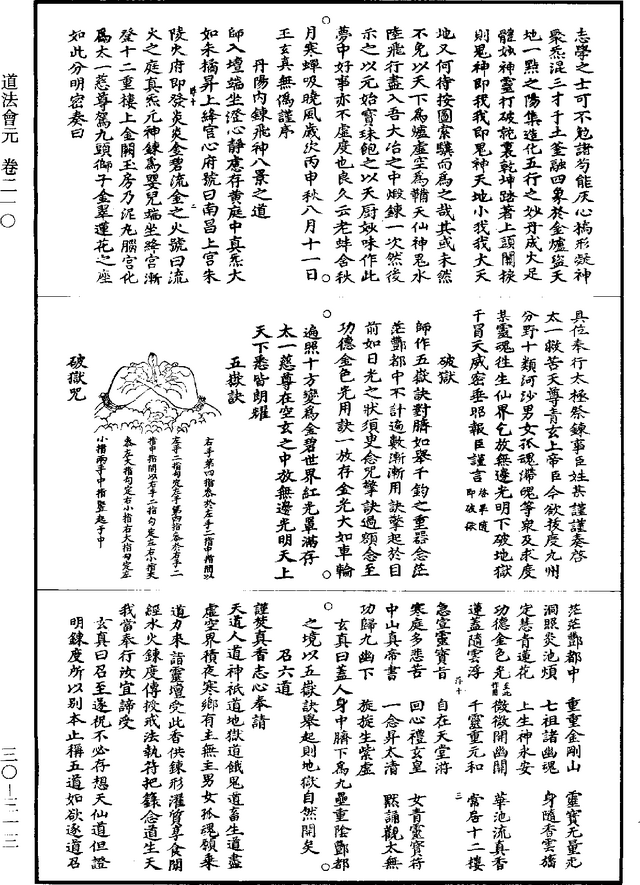 道法會元 卷二一〇
三〇—三一三
志學之士可不勉諸苟能灰心槁形凝神
聚炁混三才于土釜融四象於金爐盜天
地一點之陽集造化五行之妙丹成火足
體如神靈打破乾坤路著上頭關捩
則鬼神即我我即鬼神天地小我我大天
地又何待按圖索驥而為之哉其或未然
不免以天下為爐虛空為鞴天仙神鬼水
陸飛行盡入吾大冶之中煅鍊一次然後
示之以元始寶珠飽之以天厨妙味作此
夢中好事亦不虛度也良久云老蚌含秋
月寒蟬吸曉風歲次丙申秋八月十一日
王玄真無偽謹序
丹陽內鍊飛神八景之道
師入壇端坐澄心靜慮存黃庭中真炁大
如朱橘昇上絳宮心府號曰南昌上宮朱
陵火府即發炎炎金碧流金之火號曰流
火之庭真炁元神鍊為嬰兒端坐絳宮漸
登十二重樓上金闕玉房乃泥丸腦宮化
為太一慈尊駕九頭獅子金翠蓮花之座
如此分明密奏曰
具位奉行太極祭鍊事臣姓某謹謹奏啓
太一救苦天尊青玄上帝臣今欲拔度九州
分野十類河沙男女孤魂滯魄等衆及求度
某靈魂往生仙界乞放無邊光明下破地獄
干冒天威密垂昭報臣謹言
破獄
師作五嶽訣對臍如舉千鈞之重器念茫
茫酆都中不計遍數漸漸用訣擎起於目
前如日光之狀須更念咒擎訣過額念至
功德金色光用訣一放存金光大如車輪
遍照十方變為金碧世界紅光罩滿存
太一慈尊在空玄之中放無邊光明天上
天下悉皆朗耀
五嶽訣
右手第四指叅於左手二指中指間以
左手二指勾定左手第四指叅於右手二
指中指間以右手二指勾定左右小指夾
叅左大指勾定右小指右大指勾定左
小指兩手中指豎起于中
破獄咒
茫茫酆都中 重重金剛山 靈寶无量光
洞照炎池煩 七祖諸幽魂 身隨香雲旛
定慧青蓮花 上生神永安
功德金色光 微微開幽關 華池流真香
蓮蓋隨雲浮 千靈重元和 常居十二樓
急宣靈寶旨 自在天堂遊
寒庭多悲苦 回心禮玄皇 女青靈寶符
中山真帝書 一念昇太清 默誦觀太無
功歸九幽下 旋旋生紫虛
玄真曰蓋人身中臍下為九壘重陰酆都
之境以五嶽訣舉起則地獄自然開矣
召六道
謹焚真香志心奉請
天道人道神祇道地獄道餓鬼道畜生道盡
虛空界積夜寒鄉有主無主男女孤魂願乘
道力來詣靈壇受此香供鍊形灌質享食聞
經水火鍊度傳授戒法執符把籙念道生天
我當奉行汝宜諦受
玄真曰召至遂祝不必存想天仙道但證
明鍊度所以別本止稱五道如欲逐道召